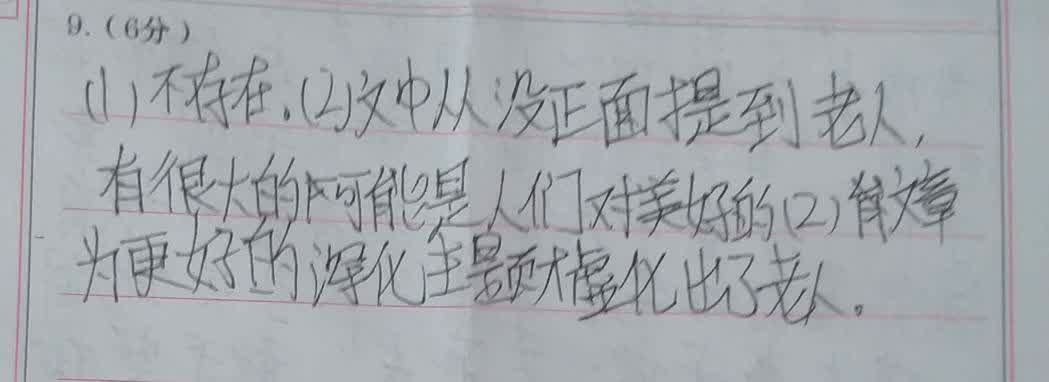 9.(6分)
(1)不存在.(2)文中从没正面提到老人,
有很大的可能是人们对美好的(2)文章
为更好的深化主题才虚化出了老人。